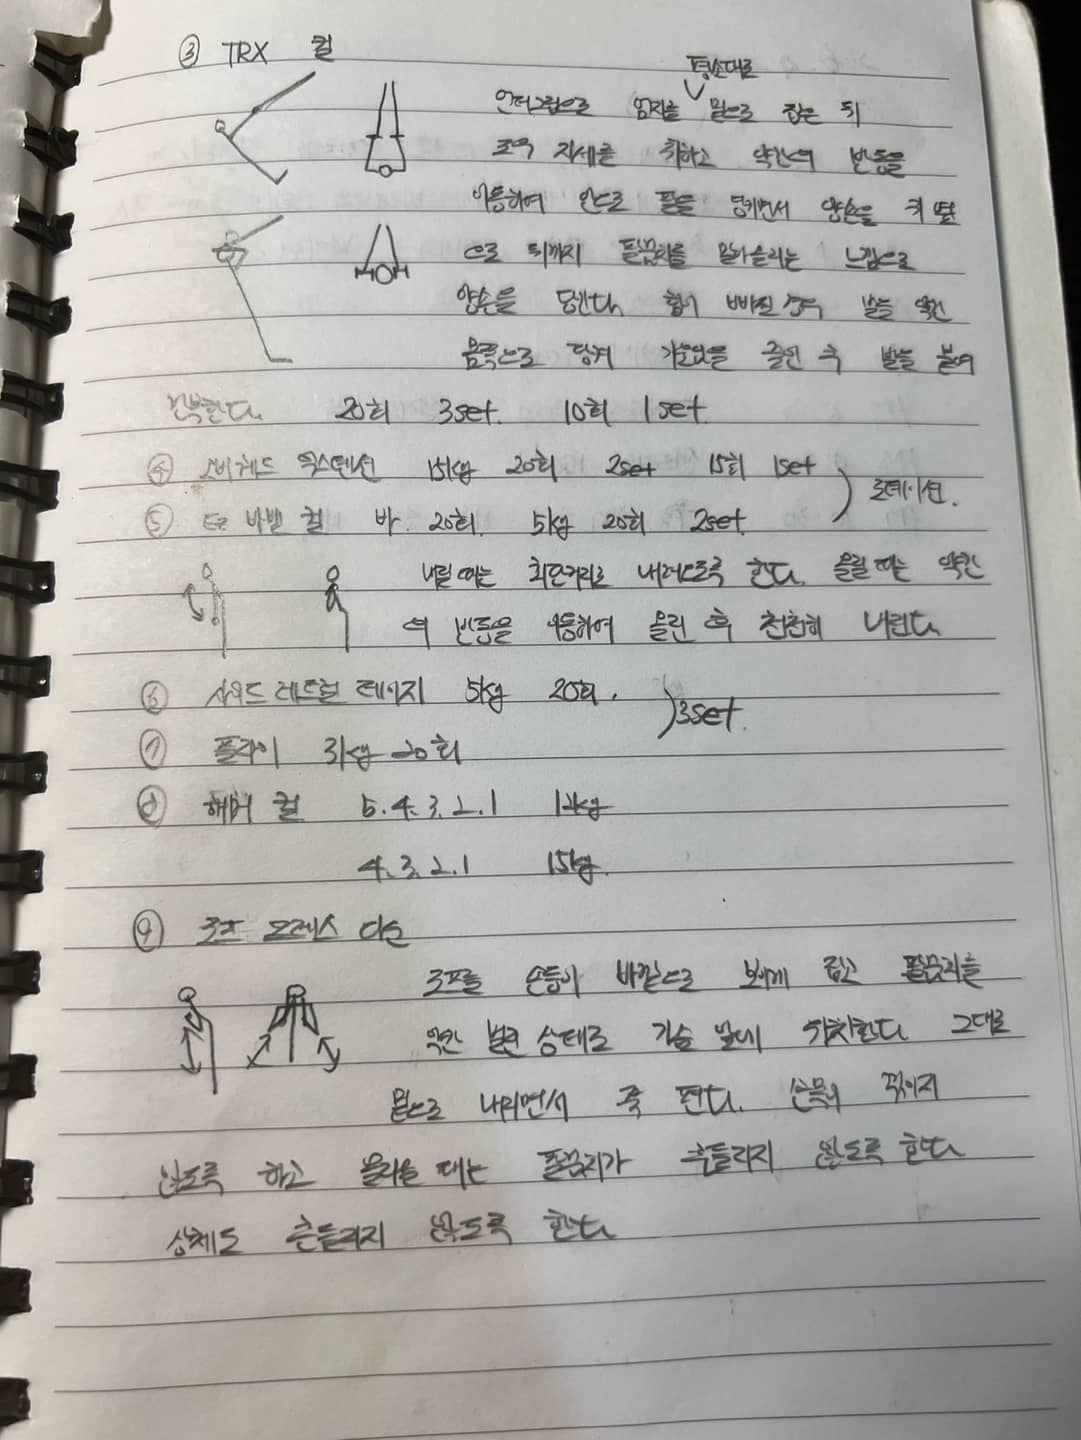 ③ TRX 컬
평소대로
언더그립으로 엄지를 밑으로 잡은 뒤
로우 자세를 취하고 약간의 반동을
이용하여 안으로 팔을 당기면서 양손을 귀 옆
으로 뒤까지 팔꿈치를 올리는 느낌으로
양손을 당긴다. 힘이 빠질 경우 발을 약간
몸쪽으로 당겨 가동범위를 줄인 후 발을 붙여
반복한다. 20회 3set. 10회 1set.
④ 오버헤드 익스텐션 15kg 20회 2set 15회 1set
로테이션.
⑤ EZ 바벨 컬 바. 20회. 5kg 20회 2set.
내릴 때는 최단거리로 내려오도록 한다. 올릴 때는 약간
의 반동을 이용하여 올린 후 천천히 내린다.
⑥ 사이드 레트럴 레이지 5kg 20회.
3set.
⑦ 플라이 3kg 20회
⑧ 해머 컬 5.4.3.2.1 12kg
4.3.2.1 15kg.
⑨ 로프 프레스 다운
로프를 손등이 바깥으로 보이게 잡고 팔꿈치를
약간 벌린 상태로 가슴 앞에 위치한다. 그대로
밑으로 내리면서 쭉 편다. 손목이 꺾이지
않도록 하고 올라올 때는 팔꿈치가 흔들리지 않도록 한다.
상체도 흔들리지 않도록 한다.